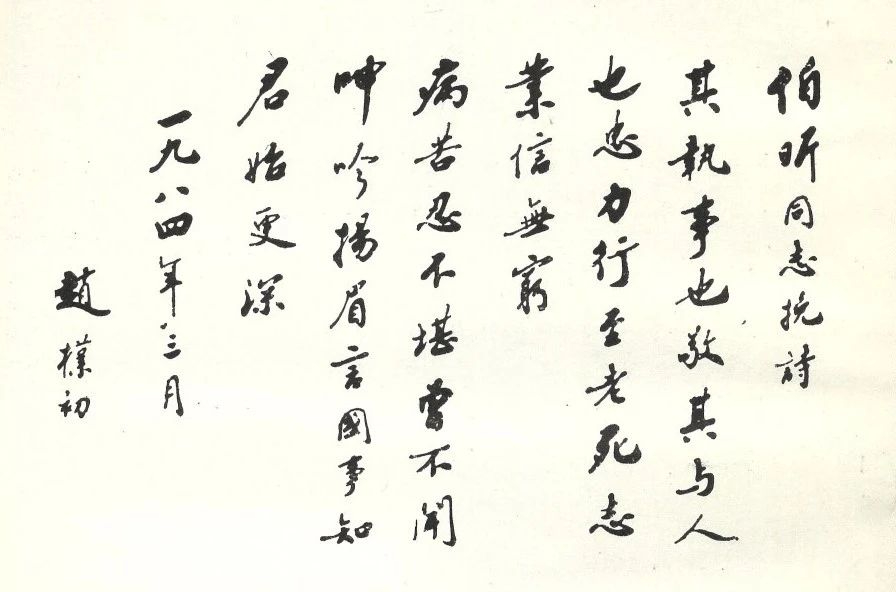 伯昕同志挽詩
其執事也敬其与人
也忠力行至老死志
業信無窮
病苦忍不堪曾不聞
呻吟揚眉言國事知
君始更深
一九八四年三月
趙樸初